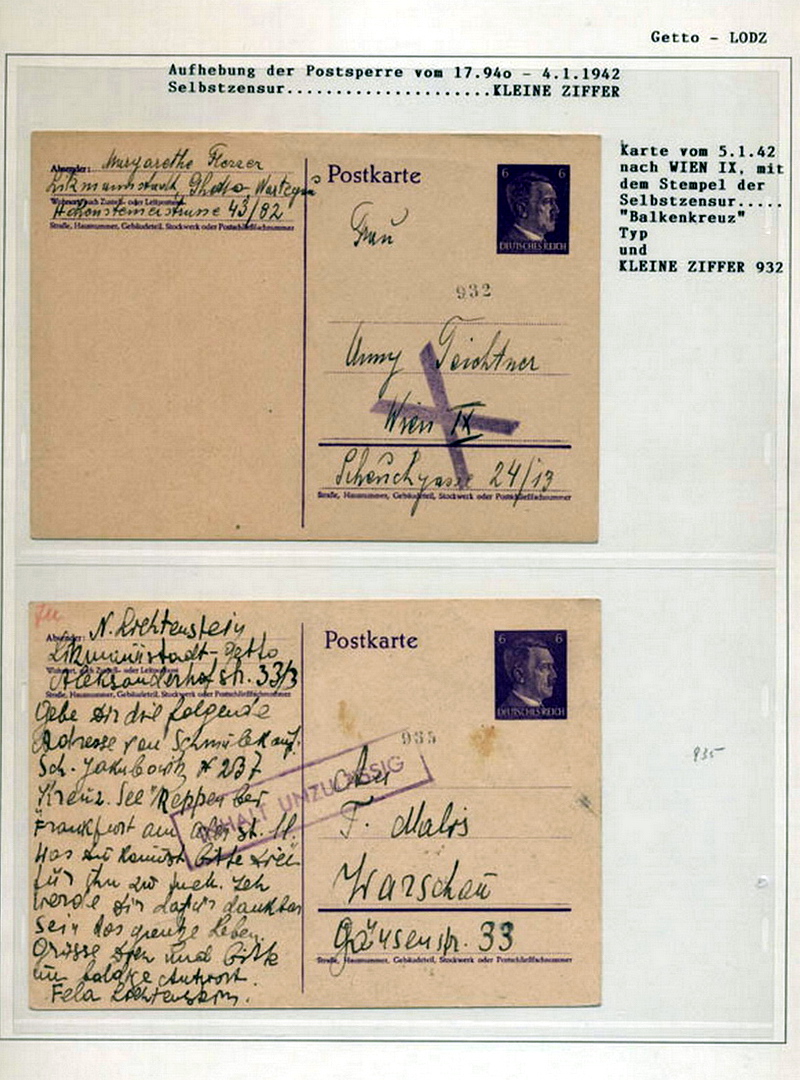 Getto - LODZ
Aufhebung der Postsperre vom 17.94o - 4.1.1942
Selbstzensur.....................KLEINE ZIFFER
Karte vom 5.1.42
nach WIEN IX, mit
dem Stempel der
Selbstzensur.....
"Balkenkreuz"
Typ
und
KLEINE ZIFFER 932
Absender: Margarethe
Litzmannstadt, Ghetto Wartegau
Wohnort, auch Zustell- oder Leitpostamt
43/82
Straße, Hausnummer, Gebäudeteil, Stockwerk oder Postschließfachnummer
Postkarte
6 6
DEUTSCHES REICH
Frau
932
Anny Teichtner
Wien IX
24/13
Straße, Hausnummer, Gebäudeteil, Stockwerk oder Postschließfachnummer
Absender: N. Lichtenstein
Litzmannstadt-Getto
Wohnort, auch Zustell- oder Leitpostamt
Aleksanderhofstr. 33/3
Straße, Hausnummer, Gebäudeteil, Stockwerk oder Postschließfachnummer
Gebe dir die folgende
Adresse von Schmulek auf.
Sch. Jakubowitz N 237
Kreuz. See Reppen bei
Frankfurt am Oder st. 11.
Was du kannst bitte
für ihn zu Ich
werde dir dafür dankbar
sein das ganze Leben
Grüsse dich und bitte
um baldige Antwort.
Fela Lichtenstein.
Postkarte
6 6
DEUTSCHES REICH
935
INHALT UNZULÄSSIG
F. Malis
Warschau
Gänsenstr. 33
Straße, Hausnummer, Gebäudeteil, Stockwerk oder Postschließfachnummer
935